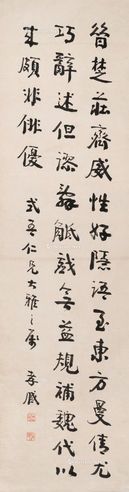 昔楚莊齊威性好隱語至東方曼倩尤
巧辭述但謬辭詆戲無益規補魏代以
來頗非俳優
式吾仁兄大雅之屬
孝臧